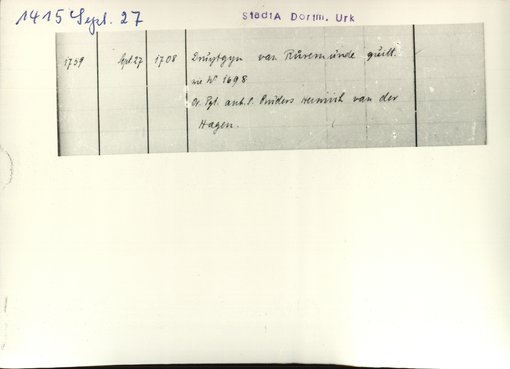 1415 Sept. 27
StadtA Dortm. Urk
1759 Sept 27 1708 Druytgyn van Ruremunde quitt.
wie Nº 1698
Or. Pgt. anh. S. Bruders Heinrich van der
Hagen.